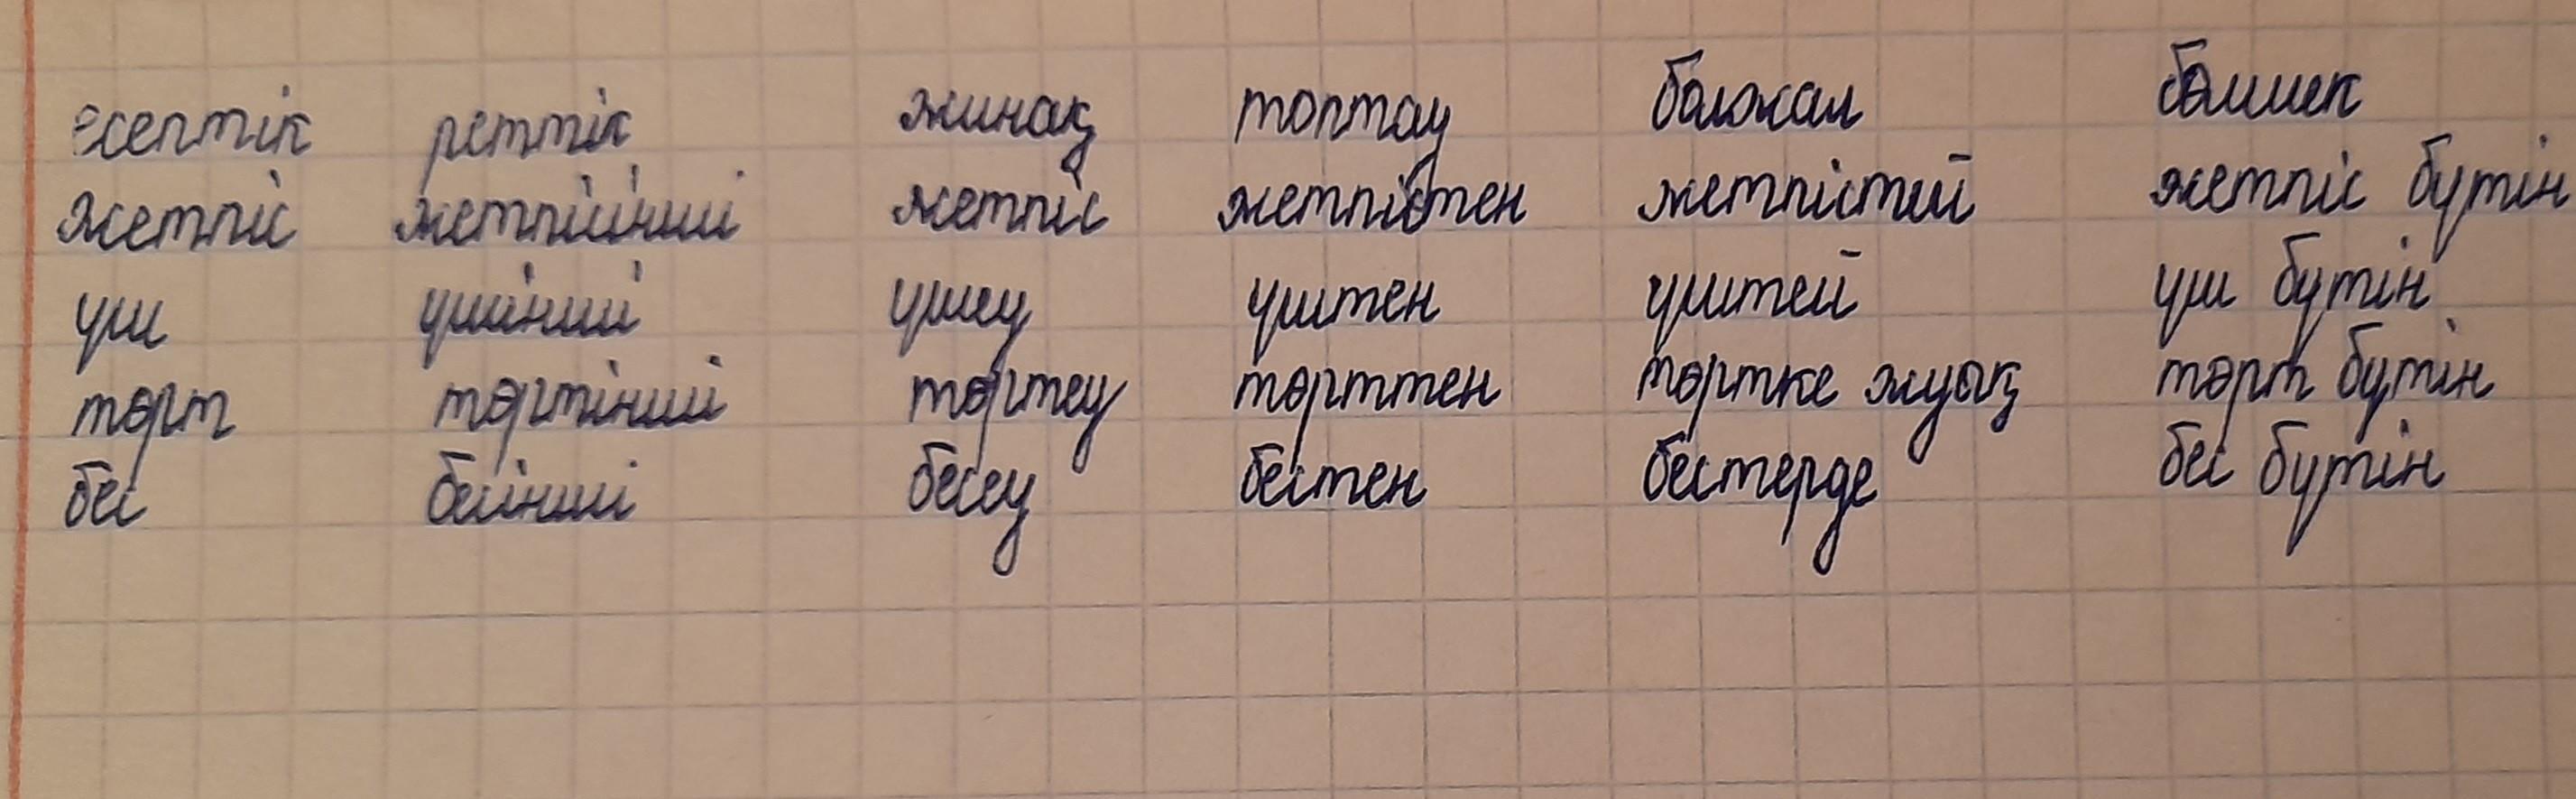 есептік реттік жинақ топтау болжал бөлшек
жетпіс жетпісінші жетпіс жетпістен жетпістей жетпіс бүтін
үш үшінші үшеу үштен үштей үш бүтін
төрт төртінші төртеу төрттен төртке жуық төрт бүтін
бес бесінші бесеу бестен бестерде бес бүтін